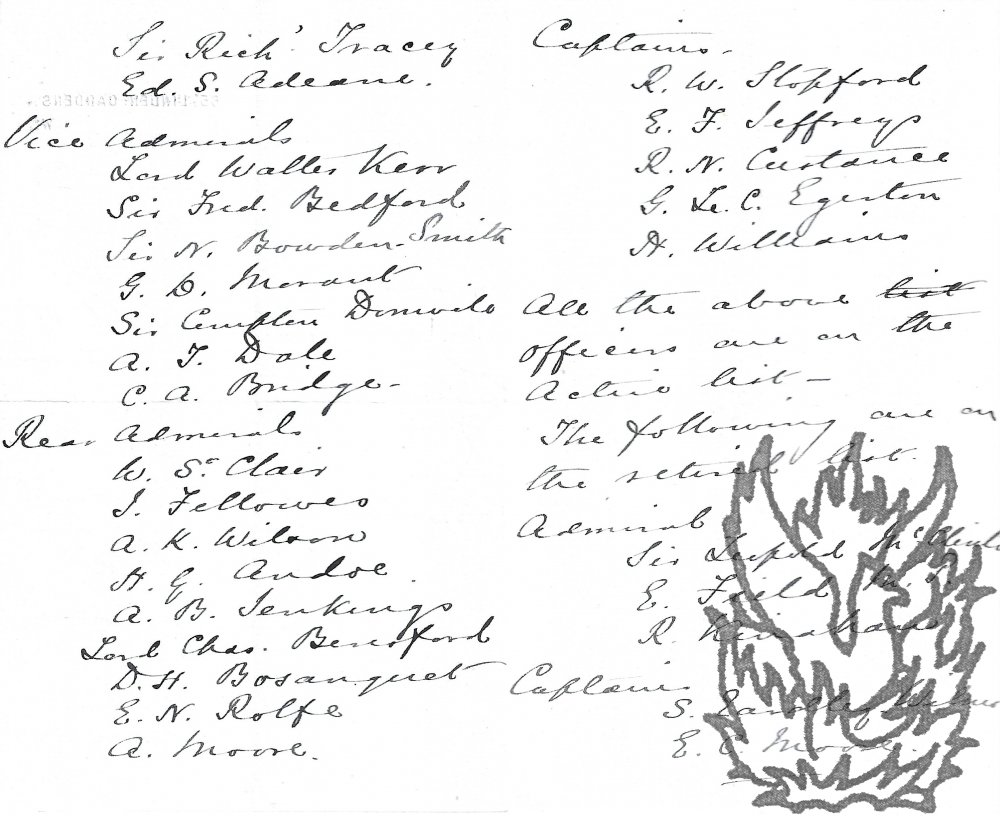 Sir Richᵈ Tracey
Ed. S. Adeane.
Vice Admirals
Lord Walter Kerr
Sir Fred. Bedford
Sir N. Bowden-Smith
G. D. Morant
Sir Compton Domvile
A. T. Dale
C. A. Bridge-
Rear Admirals
W. Sᵗ Clair
J. Fellowes
A. K. Wilson
H. G. Andoe.
A. B. Jenkings
Lord Chas. Beresford
D. H. Bosanquet
E. N. Rolfe
A. Moore.
Captains.
R. W. Stopford
E. F. Jeffreys
R. N. Custance
G. Le. C. Egerton
H. Williams
All the above list
officers are on the
Active list-
The following are on
the retired list.
Admiral
Sir Leopold
E. Field M.P.
R. Kinahan
Captains
S. Eardley Wilmot
E. C. Moore.